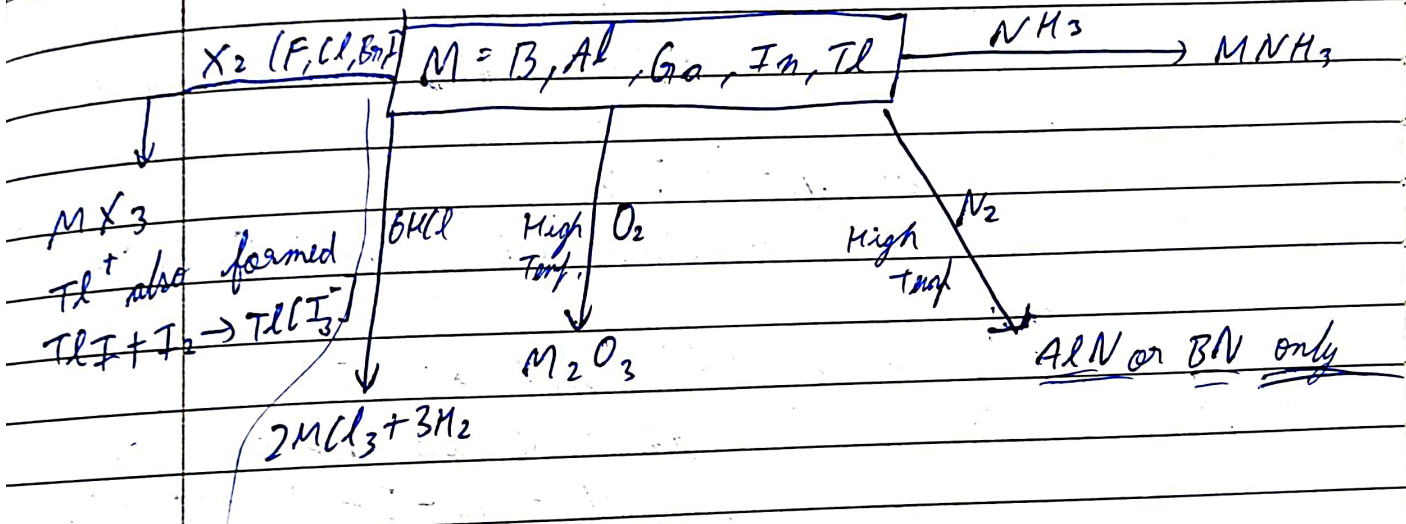 X₂ (F, Cl, Br, I)
M = B, Al, Ga, In, Tl
NH₃
MNH₃
MX₃
Tl⁺ also formed
TlI + I₂ → Tl(I₃⁻)
6HCl
2MCl₃ + 3H₂
High
Temp.
O₂
M₂O₃
High
Temp
N₂
AlN or BN only